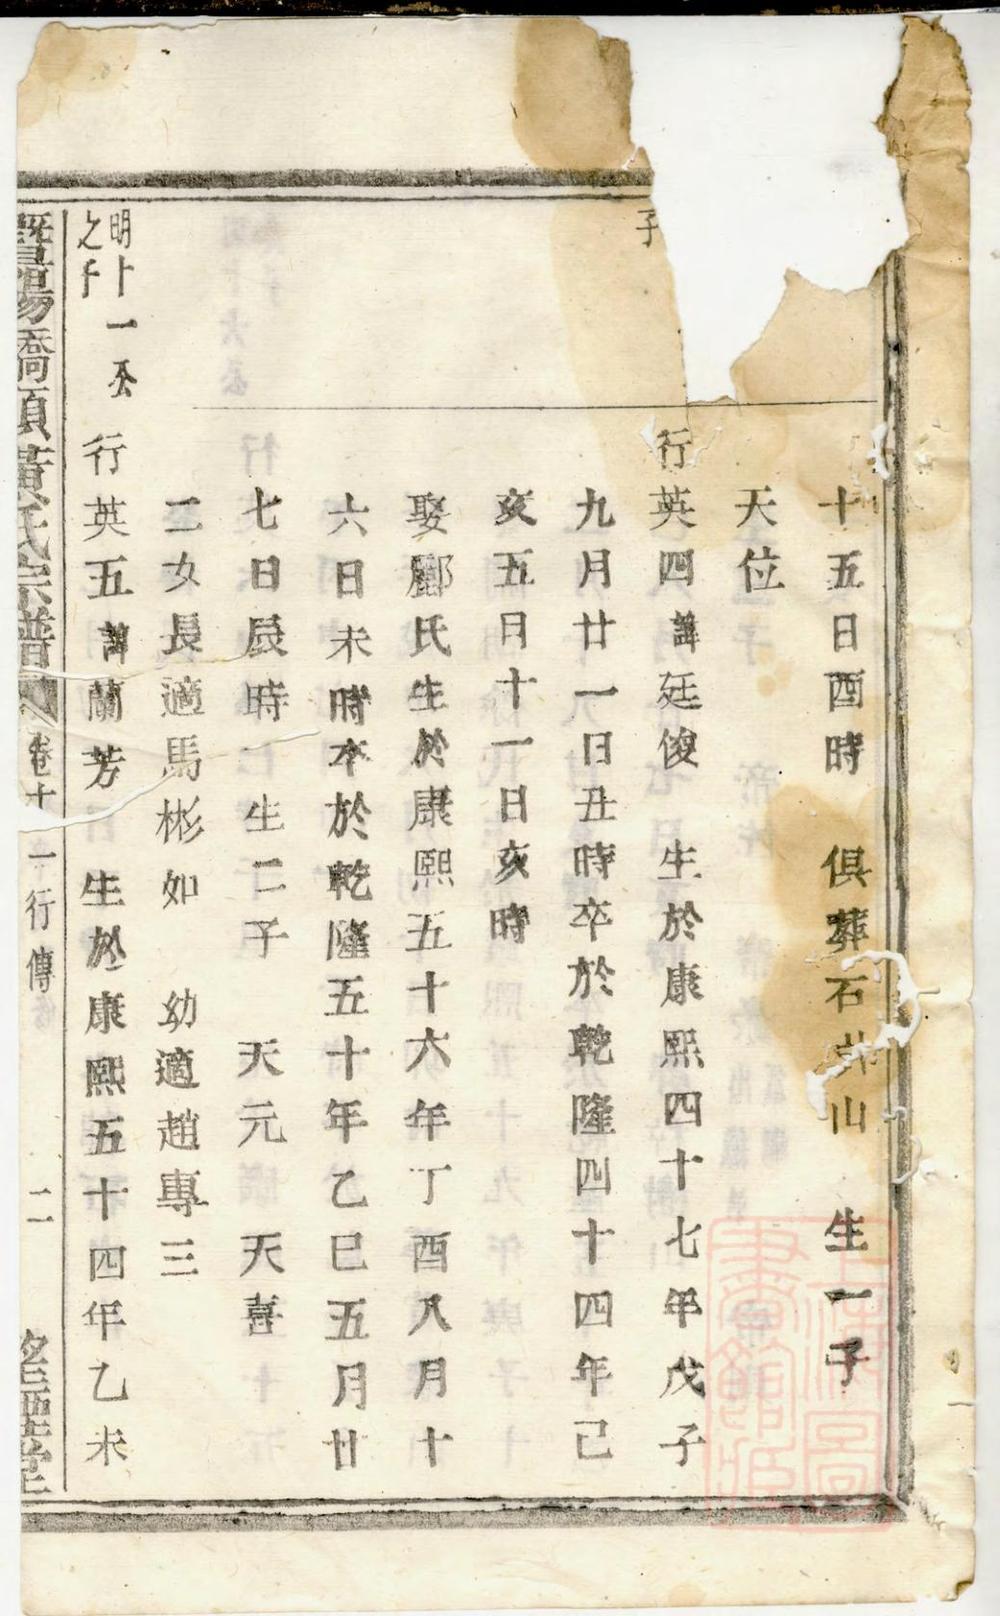 十五日酉時　俱葬石井山　生一子
天位
子
行英四諱廷俊　生於康熙四十七年戊子
九月廿一日丑時卒於乾隆四十四年己
亥五日十一日亥時
娶酈氏生於康熙五十六年丁酉八月十
六日未時卒於乾隆五十年乙巳五月廿
七日辰時　生二子　天元　天喜
二女長適馬彬如　幼適趙專三
明卜一公
之子
行英五諱蘭芳　生於康熙五十四年乙未
暨陽橋頭黃氏宗譜　卷十一行傳　二　望煙堂